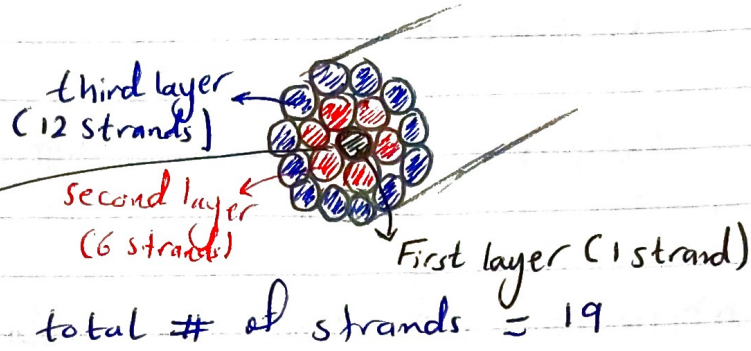 third layer
(12 strands)
second layer
(6 strands)
First layer (1 strand)
total # of strands = 19